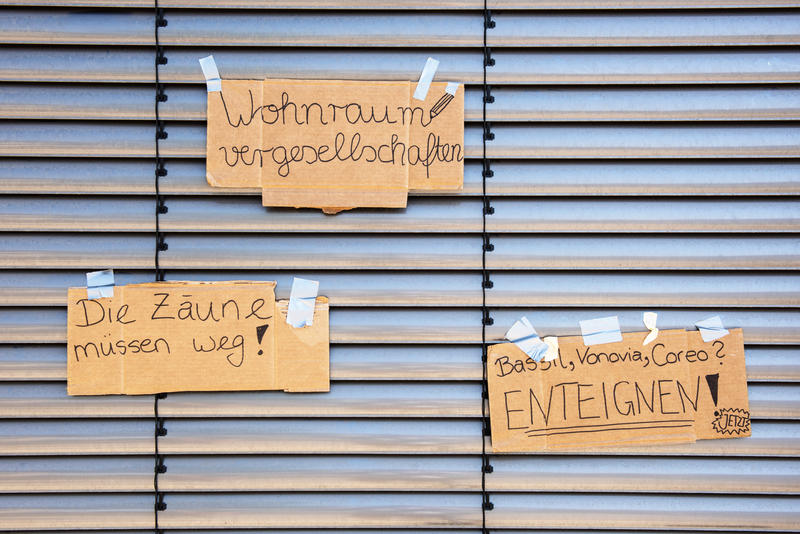 Wohnraum
vergesellschaften
Die Zäune
müssen weg!
Bassil, Vonovia, Coreo?
ENTEIGNEN!
JETZT